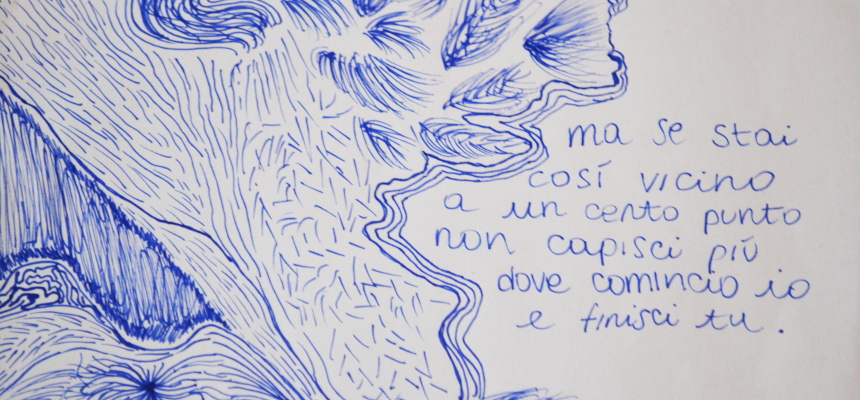 ma se stai
così vicino
a un certo punto
non capisci più
dove comincio io
e finisci tu.